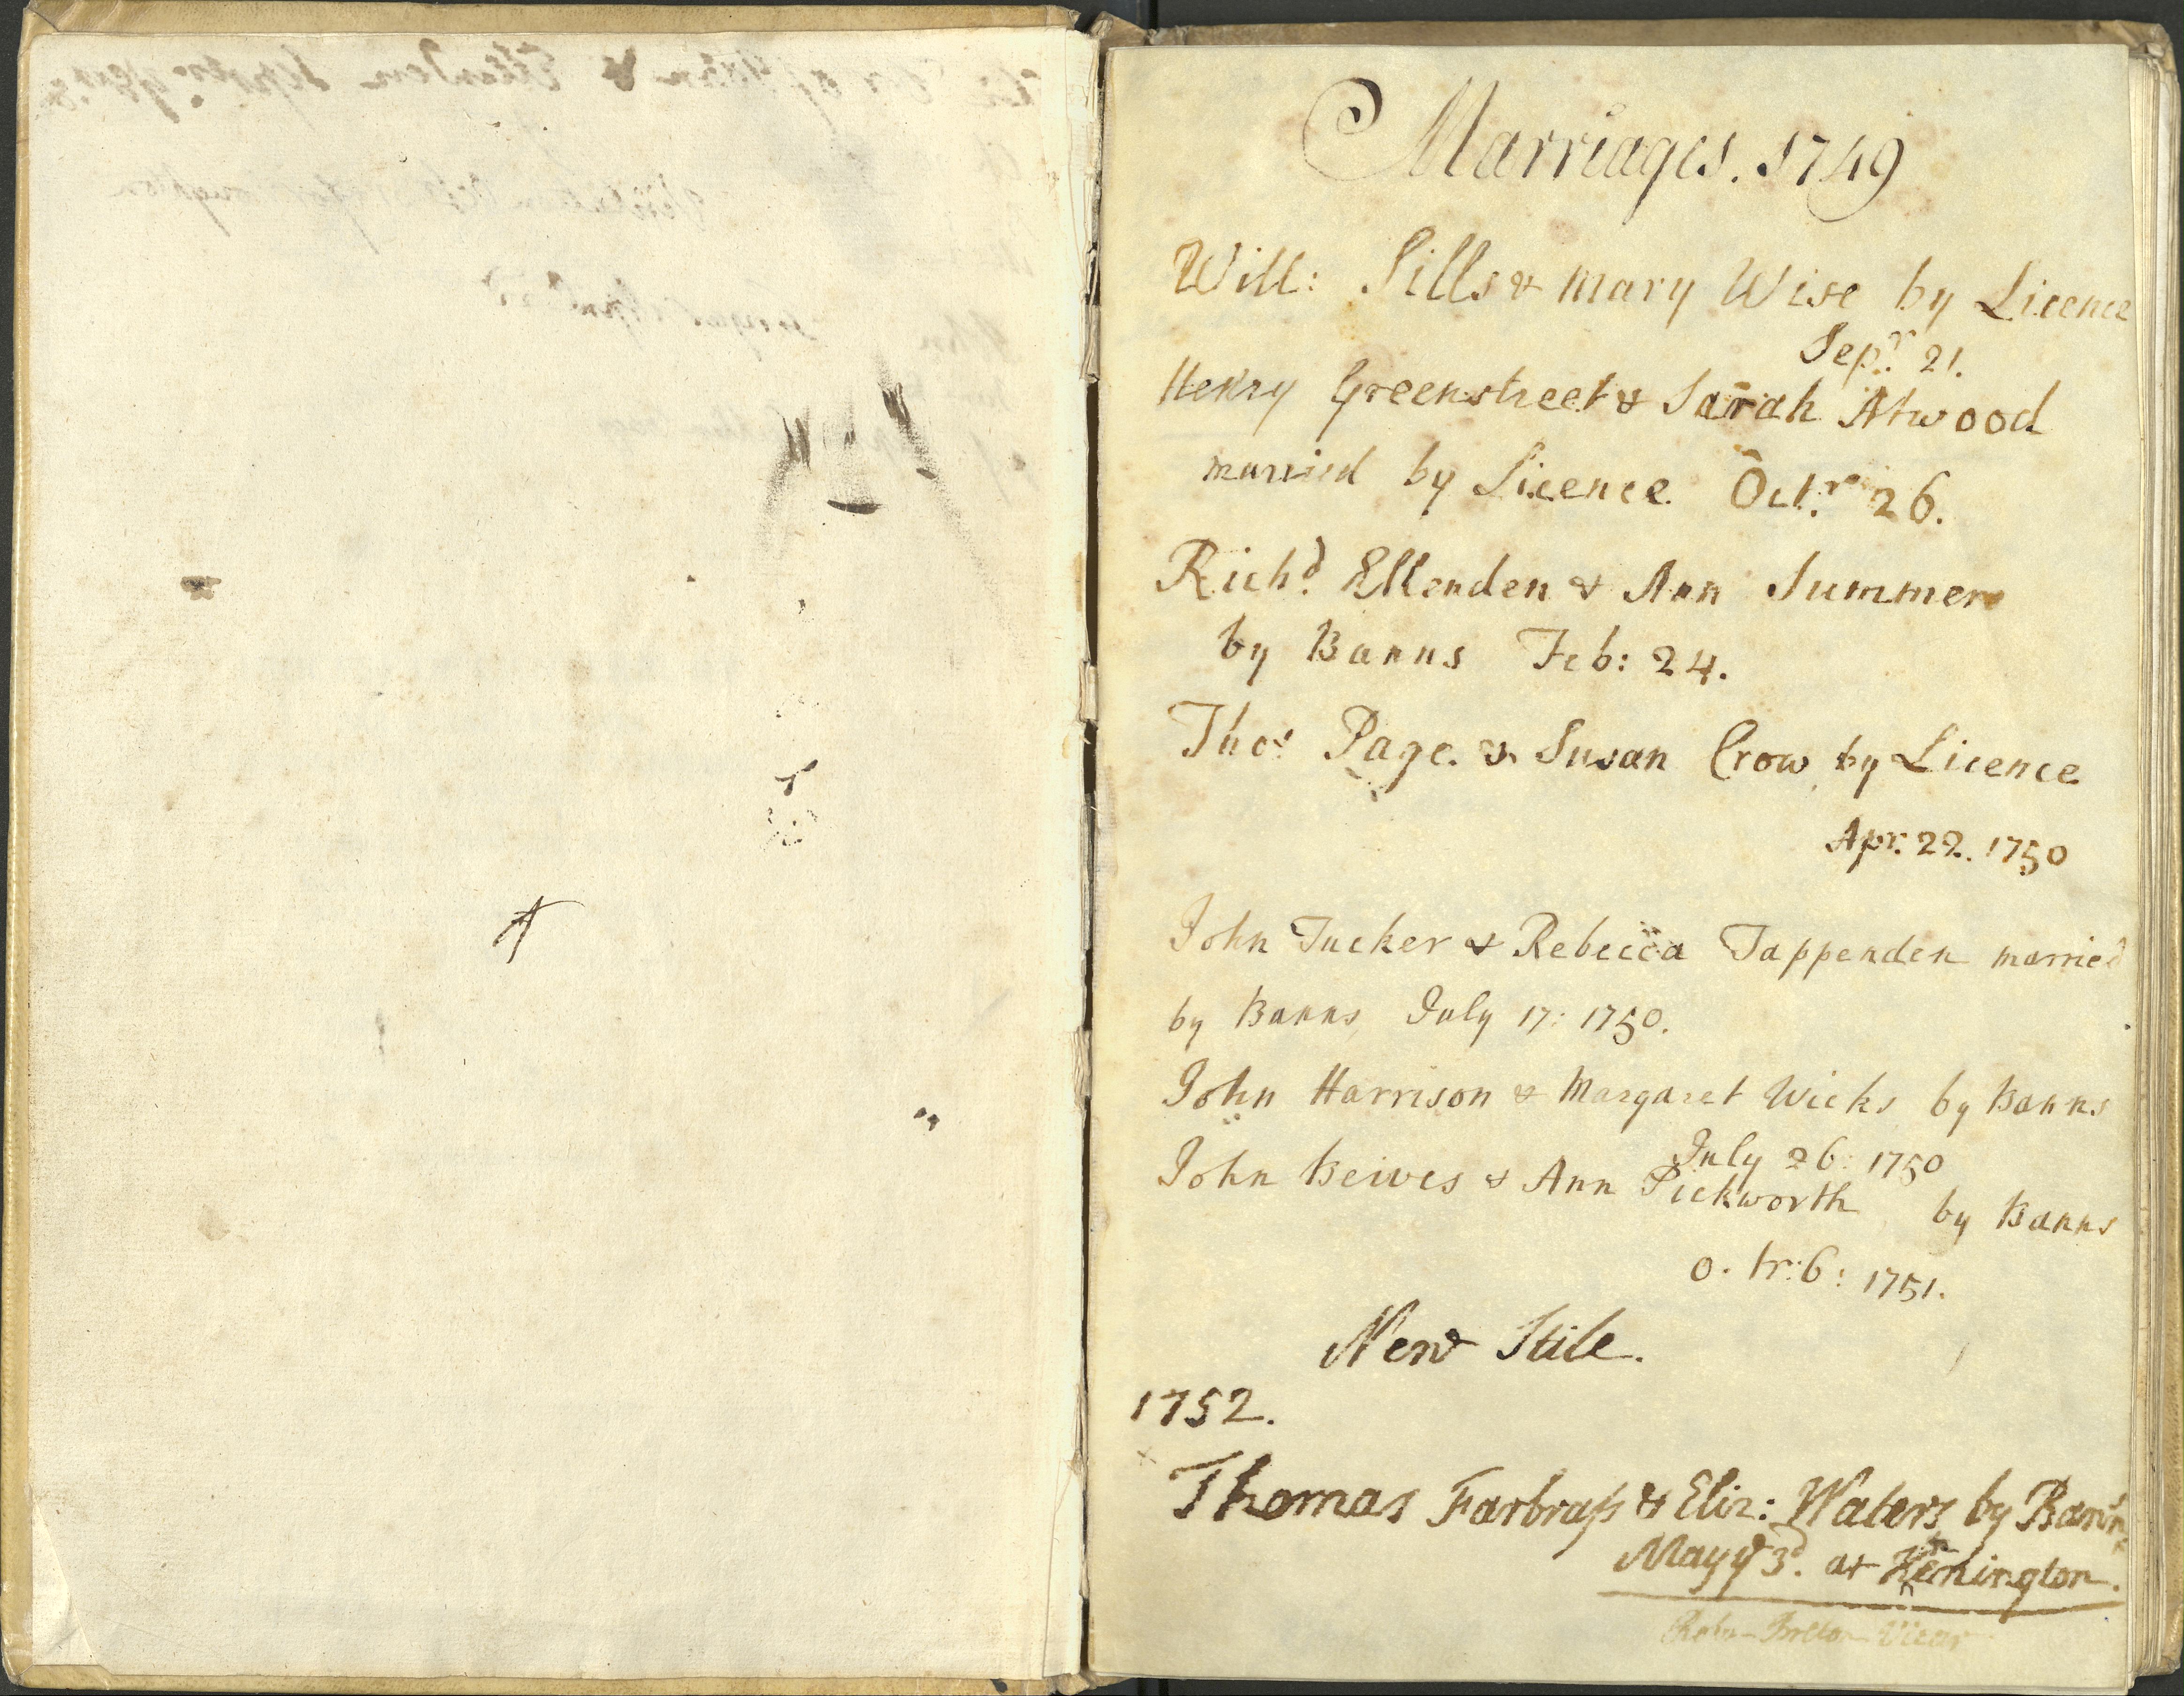 Marriages. 1749
Will: Sills & Mary Wise by Licence
Sepr. 21.
Henry Greenstreet & Sarah Atwood
married by Licence Octr. 26.
Richd. Ellenden & Ann Summers
by Banns Feb: 24.
Thos Page. & Susan Crow by Licence
Apr. 22. 1750
John Tucker & Rebecca Tappenden married
by Banns, July 17: 1750.
John Harrison & Margaret Wicks by Banns
July 26: 1750
John Beives & Ann Pickworth by Banns
6: 1751.
New Stile.
1752.
Thomas Farbrass & Eliz: Waters by Banns
May ye 3d. at Kenington.
Vicar